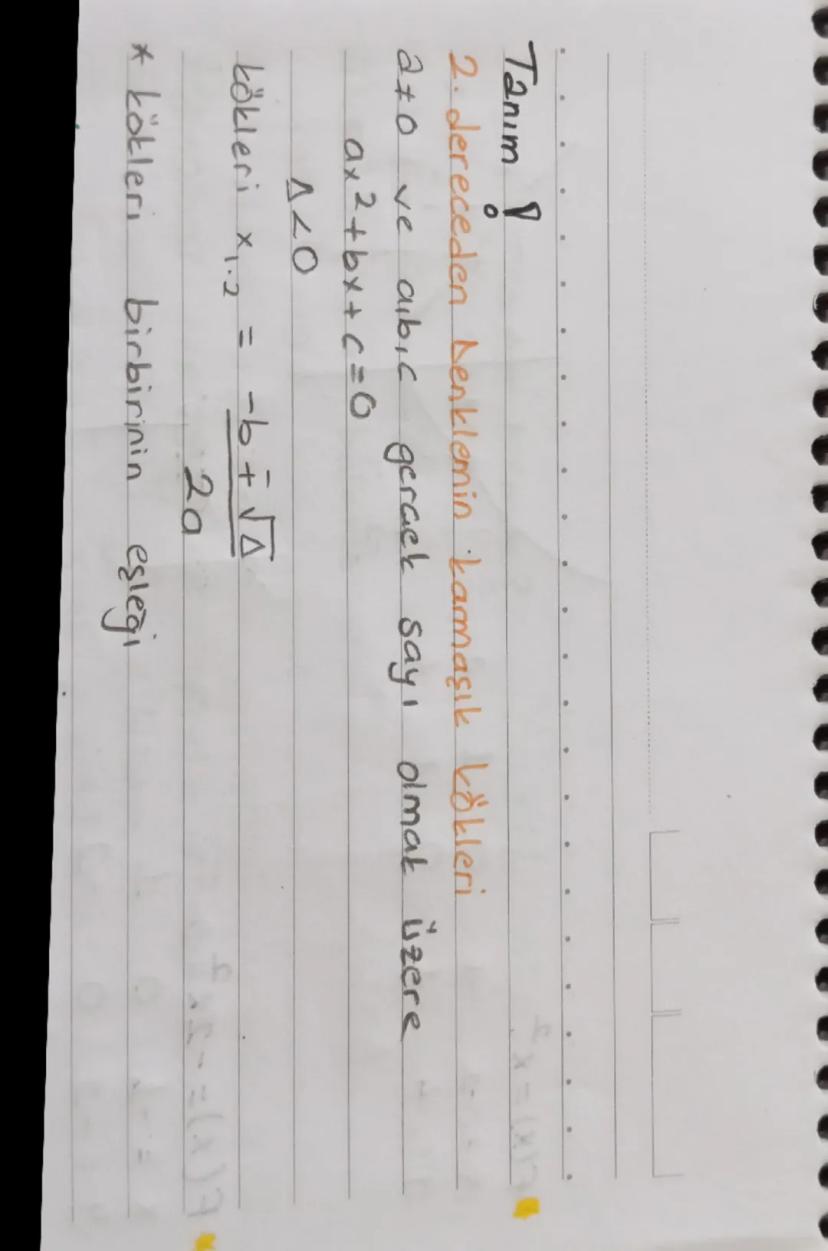 Tanım !
2. dereceden denklemin karmaşık kökleri
a≠0 ve a,b,c gerçek sayı olmak üzere
ax²+bx+c=0
Δ<0
kökleri x₁.₂ = -b∓√Δ / 2a
* kökleri birbirinin eşleği